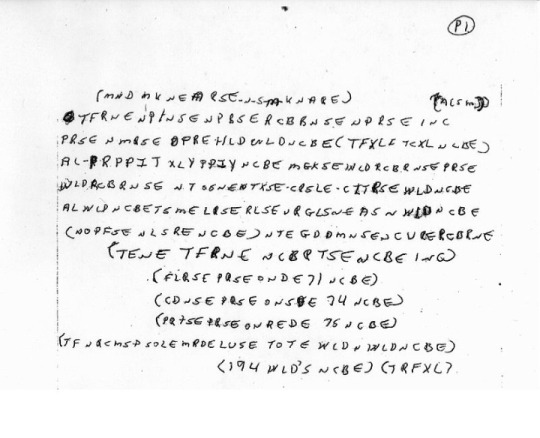 P1
(MND MKNEARSE-N-S-M-KNARE) (ACSM)
TFRNENPTNSENPBSERCBBNSENPRSEINC
PRSENMRSEOPREHLDWLDNCBE(TFXLFTCXLNCBE)
AL-PRPPITXLYPPIYNCBEMGKSEWLDRCBRNSEPRSE
WLDRCBRNSENTOSNENTXSE-CRSLE-CITRSEWLDNCBE
ALWLDNCBETSMELRSERLSEURGLSNEASNWLDNCBE
(NOPFSENLSRENCBE)NTEGDDMNSENCURERCBRNE
(TENETFRNENCBRTSENCBEING)
(FLRSEPRSEONDE71NCBE)
(CDNSEPRSEONSDE74NCBE)
(PRTSEPRSEONREDE75NCBE)
(TFNRCMSPSOLEMRDELUSETOTEWLDNWLDNCBE)
(194WLD'SNCBE)(TRFXL)